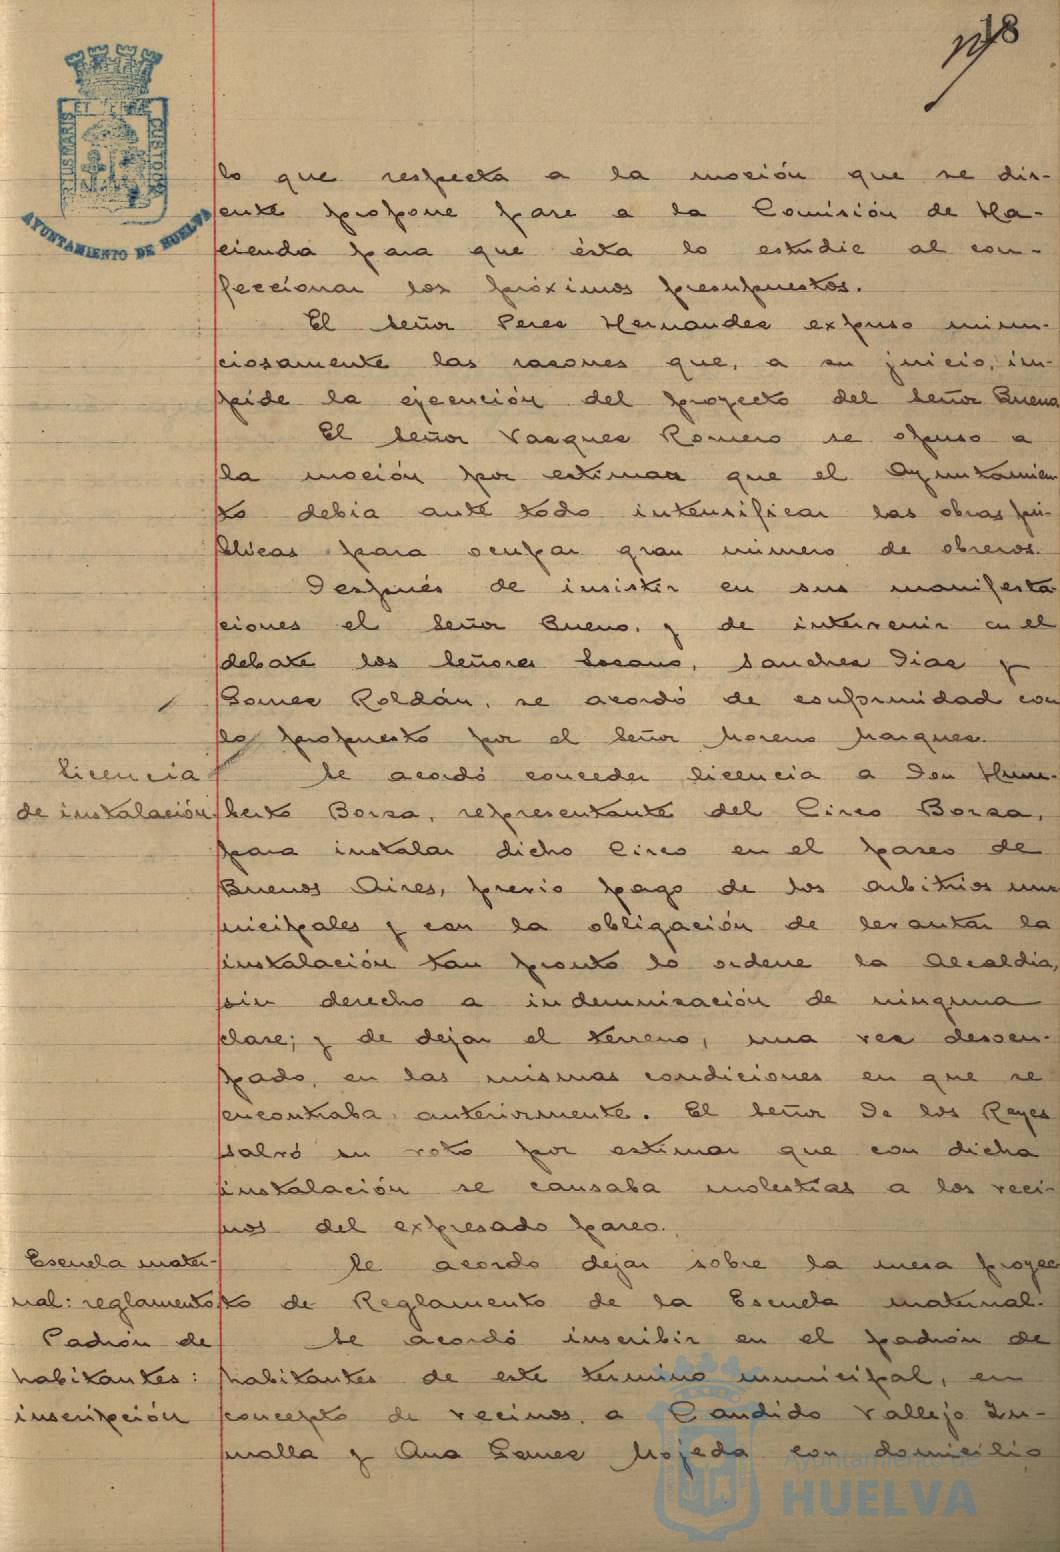 18
PORTUS MARIS ET TERRÆ CUSTODIA
AYUNTAMIENTO DE HUELVA
lo que respecta a la moción que se dis-
cute propone pase a la Comisión de Ha-
cienda para que ésta lo estudie al con-
feccionar los próximos presupuestos.
El Señor Perez Hernandez expuso minu-
ciosamente las razones que, a su juicio, im-
pide la ejecución del proyecto del Señor Bueno
El Señor Vazquez Romero se opuso a
la moción por estimar que el Ayuntamien
to debia ante todo intensificar las obras pú-
blicas para ocupar gran número de obreros.
Después de insistir en sus manifesta
ciones el Señor Bueno, y de intervenir en el
debate los Señores Lozano, Sanchez Diaz y
Gomez Roldán, se acordó de conformidad con
lo propuesto por el Señor Moreno Marquez.
Licencia
de instalación.
Se acordó conceder licencia a Don Hum-
berto Borza, representante del Circo Borza,
para instalar dicho Circo en el paseo de
Buenos Aires, previo pago de los arbitrios mu-
nicipales y con la obligación de levantar la
instalación tan pronto lo ordene la Alcaldia,
sin derecho a indemnización de ninguna
clase; y de dejar el terreno, una vez desocu-
pado, en las mismas condiciones en que se
encontraba anteriormente. El Señor De los Reyes
salvó su voto por estimar que con dicha
instalación se causaba molestias a los veci-
nos del expresado paseo.
Escuela mater-
nal: reglamento
Se acordo dejar sobre la mesa proyec
to de Reglamento de la Escuela maternal.
Padrón de
habitantes:
inscripción
Se acordó inscribir en el padrón de
habitantes de este termino municipal, en
concepto de vecinos, a Candido Vallejo Zu-
malla y Ana Gomez Mojeda con domicilio
Ayuntamiento de
HUELVA